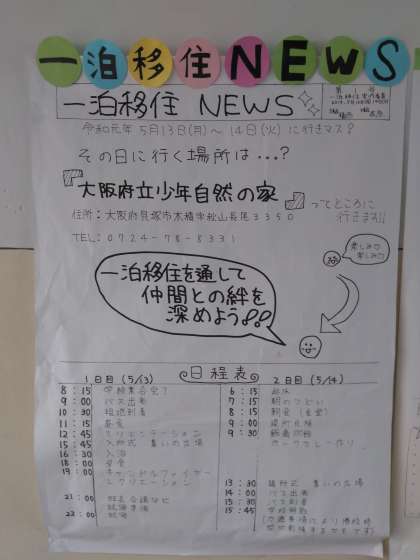 一泊移住NEWS
一泊移住 NEWS
令和元年 5月13日(月)～14日(火)に行きマス?
その日に行く場所は…?
『大阪府立少年自然の家』ってところに
行きます!!
住所：大阪府貝塚市木積字秋山長尾3350
TEL: 0724-78-8331
楽しみ♡
楽しみ♡
一泊移住を通して
仲間との絆を
深めよう!!
日程表
1日目(5/13)
8:15
9:00 バス出発
10:30 現地到着
11:15 昼食
12:45 オリエンテーション
15:45 入館式 集いの広場
16:30 入浴
18:00 夕食
19:00 キャンドルファイヤー
レクリエーション
21:00 班長会議など
就寝準備
22:00 就寝
2日目(5/14)
6:15 起床
7:15 朝のつどい
8:15 朝食(食堂)
9:00 退所点検
9:30
カレーライス作り
13:30 退所式 集いの広場
14:00 バス出発
15:30 バス到着
15:45 学校解散